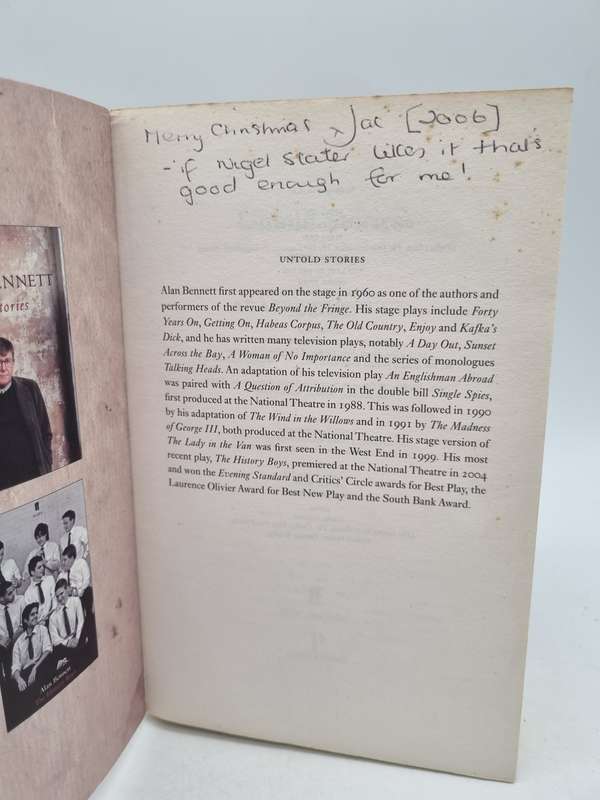 Merry Christmas x Jac [2006]
- if Nigel Slater likes it that's
good enough for me!
UNTOLD STORIES
Alan Bennett first appeared on the stage in 1960 as one of the authors and
performers of the revue Beyond the Fringe. His stage plays include Forty
Years On, Getting On, Habeas Corpus, The Old Country, Enjoy and Kafka's
Dick, and he has written many television plays, notably A Day Out, Sunset
Across the Bay, A Woman of No Importance and the series of monologues
Talking Heads. An adaptation of his television play An Englishman Abroad
was paired with A Question of Attribution in the double bill Single Spies,
first produced at the National Theatre in 1988. This was followed in 1990
by his adaptation of The Wind in the Willows and in 1991 by The Madness
of George III, both produced at the National Theatre. His stage version of
The Lady in the Van was first seen in the West End in 1999. His most
recent play, The History Boys, premiered at the National Theatre in 2004
and won the Evening Standard and Critics' Circle awards for Best Play, the
Laurence Olivier Award for Best New Play and the South Bank Award.
ENNETT
tories
Alan Bennett